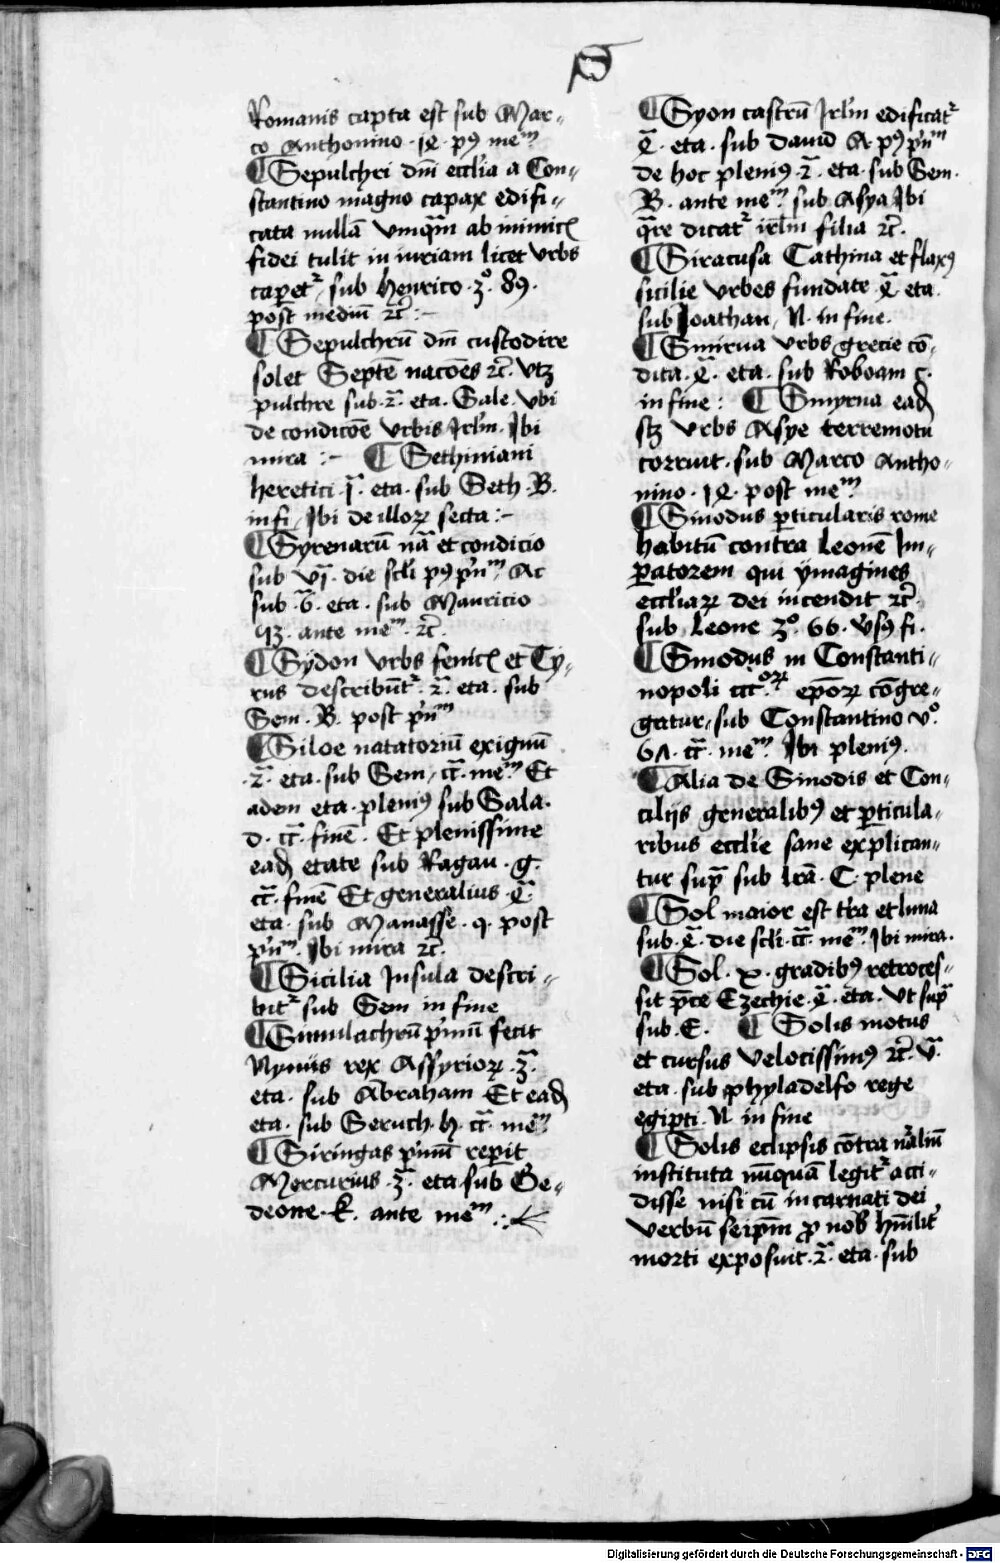 S
Romanis capta est sub Mar„
co Anthonino · 18 · p⁹ meᵐ
¶ Sepulchri dnī ecclīa a Con„
stantino magno capax edifi„
cata nullā vmq̄m ab inimicꝭ
fidei tulit in iuriam licet vrbs
caperet᷑ / sub Henrico · 3°. 89.
post mediū ⁊c̄ :~
¶ Sepulchrū dnī custodire
solet Septē nacōes ⁊c̄. vtꝫ
pulchre sub · 2ᵃ. eta. Sale. vbi
de condicōe vrbis Jrlm̄. Jbi
mira :~ ¶ Sethiniani
heretici · 1ᵃ. eta · sub Seth · B.
in fi / Jbi de illoꝝ secta :~
¶ Syrenarū nā et condicio
sub vj. die scl̄i p⁹ pn̄ᵐ. Ac
sub · 6. eta. sub Mauricio
43. ante meᵐ. ⁊c̄.
¶ Sydon vrbs fenicꝭ et Ty„
rus describūt᷑. 2ᵃ. eta. sub
Sem. B. post pn̄ᵐ
¶ Siloe natatoriū exiguū
· 2ᵃ. eta. sub Sem / cᵃ̄. meᵐ. Et
adem eta. pleni⁹ sub Sala.
d. cᵃ̄. finē. Et plenissime
eadꝫ etate sub Ragau. g.
cᵃ̄. finē Et generalius · 4ᵃ.
eta. sub Manasse. q. post
pn̄ᵐ. Jbi mira ⁊c̄.
¶ Sicilia Jnsula descri„
bit᷑ sub Sem in fine
¶ Simulachrū p̄mū fecit
Nynus rex Assyrioꝝ · 3ᵃ.
eta. sub Abraham Et eadꝫ
eta. sub Seruch. h. cᵃ̄. meᵐ
¶ Siringas p̄mū reꝑit
Mercurius · 3ᵃ. eta. sub Ge„
deone. k. ante meᵐ :~
¶ Syon castrū Jrlm̄ edificat᷑
4ᵃ. eta. sub dauid A p⁹ pn̄ᵐ
de hoc pleni⁹. 2ᵃ. eta. sub Sem.
B. ante meᵐ. sub Asya Jbi
q̄re dicat᷑ irlm̄ filia ⁊c̄.
¶ Siracusa Cathina et flax⁹
sicilie vrbes fundate 4ᵃ eta.
sub Joathan / N. in fine.
¶ Smirna vrbs grecie cō„
dita. 4ᵃ. eta. sub Roboam c.
in fine : ¶ Smyrna eadꝫ
sꝫ vrbs Asye terremotu
corruit. sub Marco Antho„
nino. 18. post meᵐ
¶ Sinodus ꝑticularis rome
habitū contra Leonē Jm„
ꝑatorem qui ymagines
eccliaꝝ dei incendit ⁊c̄.
sub Leone 3°. 66. vs⁹ fi.
¶ Sinodus in Constanti„
nopoli ccc.ᵒʳᵘᵐ ep̄oꝝ cōgre„
gatur / sub Constantino v°.
67. cᵃ̄. meᵐ. Jbi pleni⁹.
¶ Alia de Sinodis et Con„
cilijs generalib⁹ et ꝑticula„
ribus ecclīe sane explican„
tur sup̄ sub lrā. C. plene
¶ Sol maior est tr̄a et luna
sub. 4ᵃ. die scl̄i. cᵃ̄. meᵐ. Jbi mira.
¶ Sol. x. gradib⁹ retroces„
sit p̄ce Ezechie. 4ᵃ. eta. vt sup̄
sub. E. ¶ Solis motus
et cursus velocissim⁹ ⁊c̄. vᵃ.
eta. sub phyladelfo rege
egipti. N in fine
¶ Solis eclipsis cōtra nāliū
instituta nūquā legit᷑ acci„
disse nisi cū incarnati dei
verbū seip̄m ꝓ nob̄ hūilit᷑
morti exposuit. 2ᵃ. eta. sub
Digitalisierung gefördert durch die Deutsche Forschungsgemeinschaft - DFG